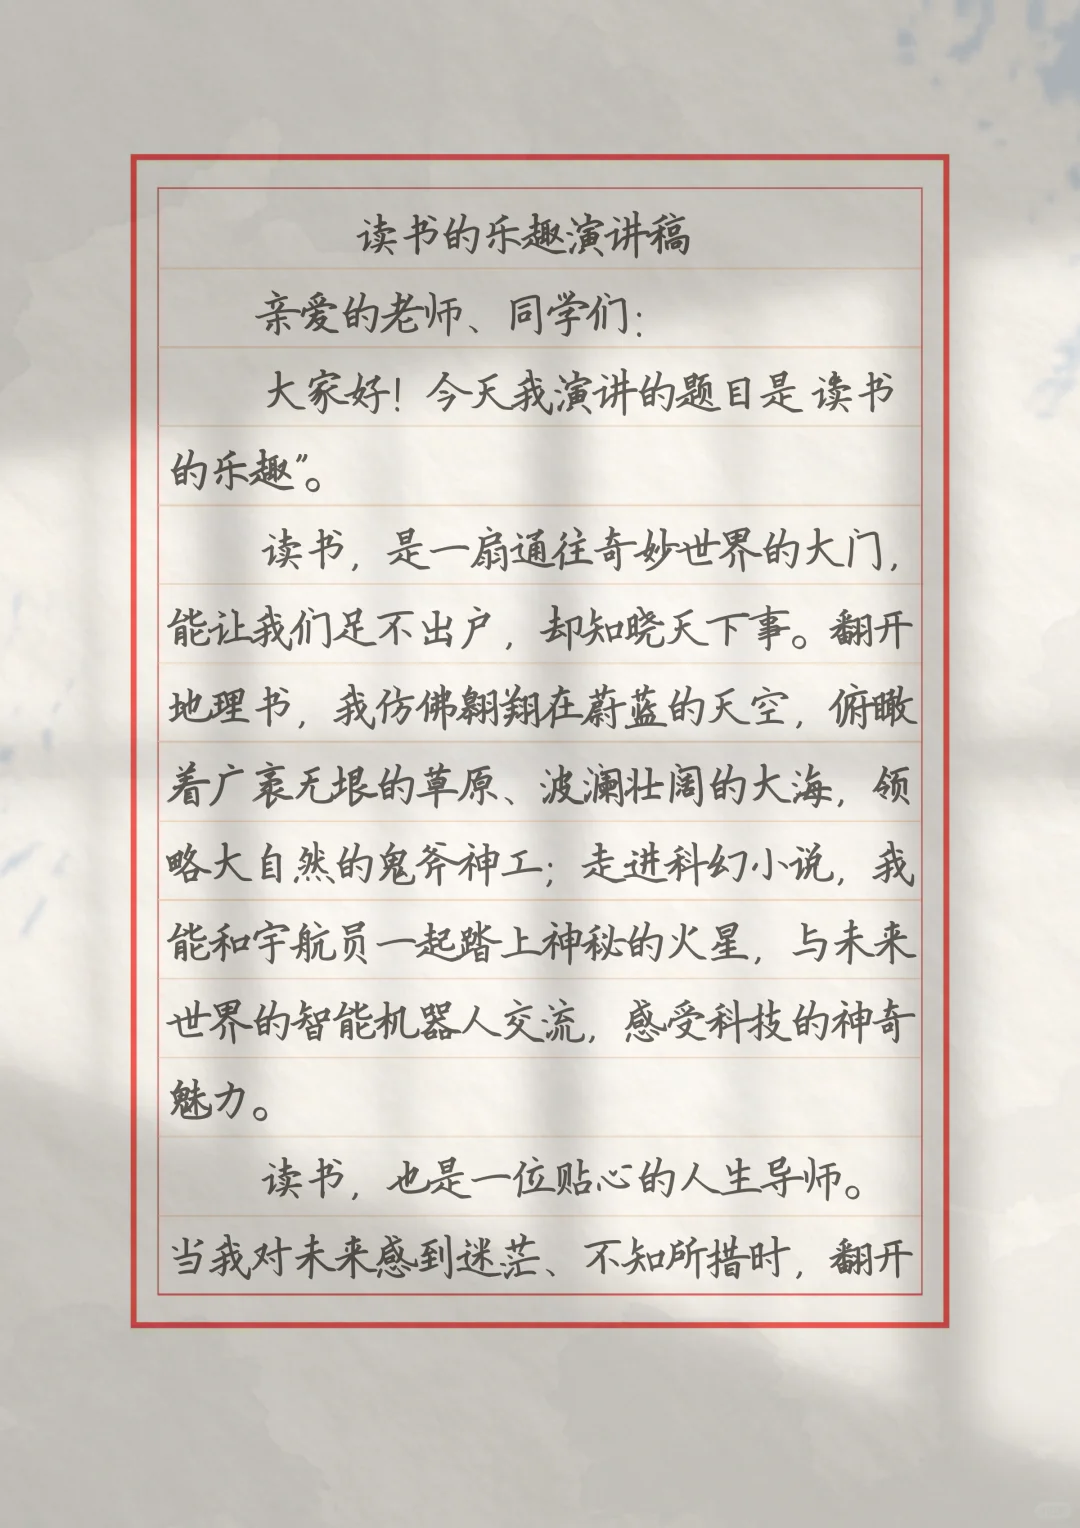 读书的乐趣演讲稿
亲爱的老师、同学们：
大家好！今天我演讲的题目是 读书
的乐趣”。
读书，是一扇通往奇妙世界的大门，
能让我们足不出户，却知晓天下事。翻开
地理书，我仿佛翱翔在蔚蓝的天空，俯瞰
着广袤无垠的草原、波澜壮阔的大海，领
略大自然的鬼斧神工；走进科幻小说，我
能和宇航员一起踏上神秘的火星，与未来
世界的智能机器人交流，感受科技的神奇
魅力。
读书，也是一位贴心的人生导师。
当我对未来感到迷茫、不知所措时，翻开